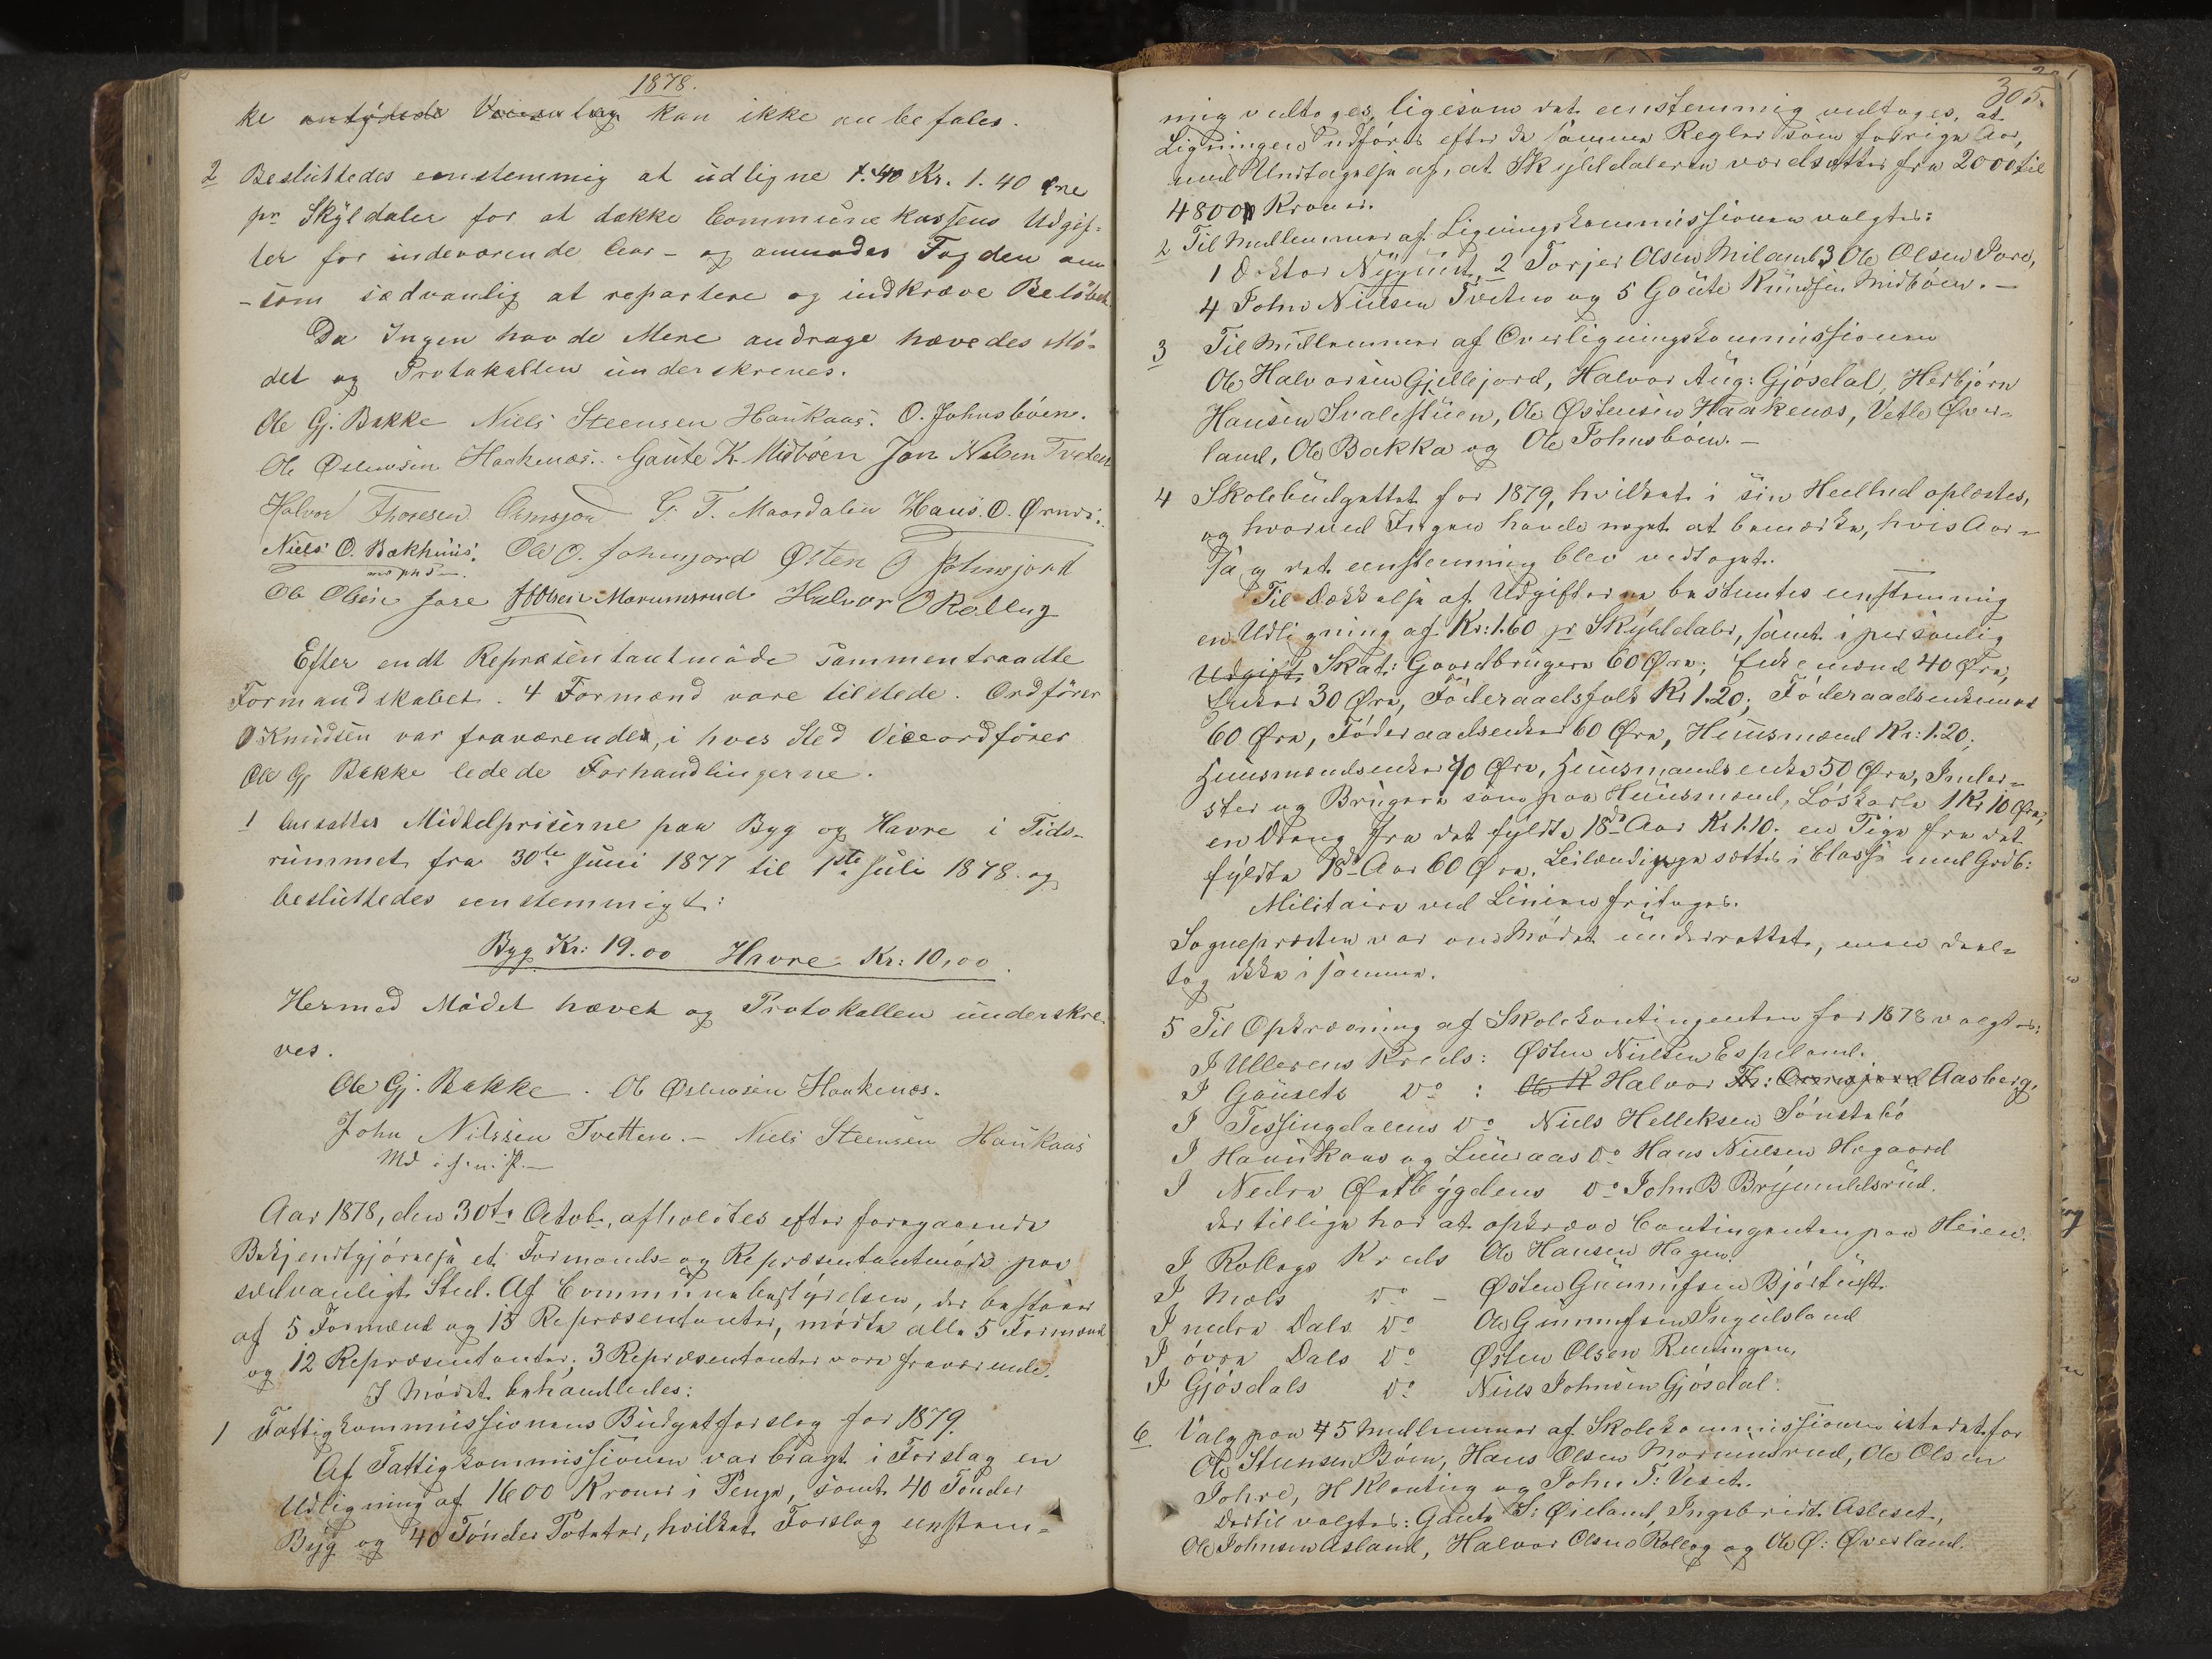 1878.
ke antydede Veianlæg kan ikke anbefales.
2 Besluttedes eenstemmig at udligne 1.40 Kr. 1.40 Øre
pr Skyldaler for at dække Communekassens Udgif-
ter for indeværende Aar - og anmodes Fogden om
- som sædvanlig at repartere og indkræve Beløbet.
Da Ingen havde Mere andrage hævedes Mø-
det og Protokollen underskreves.
Ole Gj. Bakke Niels Steensen Haukaas. O. Johnsbøen.
Ole Østensen Haakenæs. Gaute K. Midbøen Jon Nilsen Tveten
Halvor Thoresen Ormsjord G. T. Maardalen Hans. O. Ørnes.
Niels O. Bækhuus. Ole O. Johnsjord Østen O Johnsjord
med ph. P.
Ole Olsen Jore HOlsen Marumsrud Halvor O Rollug
Efter endt Repræsentantmøde sammentraadte
Formandskabet. 4 Formænd vare tilstede. Ordfører
O Knudsen var fraværende, i hves Sted Viceordfører
Ole Gj Bakke ledede Forhandlingerne.
1 Ansattes Middelpriserne paa Byg og Havre i Tids-
rummet fra 30te Juni 1877 til 1ste Juli 1878. og
besluttedes eenstemmigt:
Byg Kr: 19.00 Havre Kr: 10,00.
Hermed Mødet hævet og Protokollen underskre-
ves.
Ole Gj. Bakke. Ole Østensen Haakenæs.
John Nilssen Tvetten. - Niels Steensen Haukaas
Md i f. n. P. -
Aar 1878, den 30te Octob., afholdtes efter foregaaende
Bekjendtgjørelse et Formands- og Repræsentantmøde paa
sædvanligt Sted. Af Communebestyrelsen, der bestaaer
af 5 Formænd og 15 Repræsentanter, mødte alle 5 Formænd
og 12 Repræsentanter; 3 Repræsentanter vare fraværende.
I Mødet behandledes:
1 Fattigkommissionens Budgetforslag for 1879.
Af Fattigkommissionen var bragt i Forslag en
Udligning af 1600 Kroner i Penge, samt 40 Tønder
Byg og 40 Tønder Poteter, hvilket Forslag eenstem-
305.
mig vedtoges, ligesom det eenstemmig vedtoges, at
Ligningen udføres efter de samme Regler som forrige Aar,
med Undtagelse af, at Skylddaleren værdsættes fra 2000 til
4800 Kroner.
2 Til Medlemmer af Ligningskommissionen valgtes:
1 Doktor Nyquist, 2 Torjer Olsen Miland 3 Ole Olsen Jore,
4 John Nielsen Tveten og 5 Gaute Knudsen Midbøen. -
3 Til Medlemmer af Overligningskommissionen
Ole Halvorsen Gjellejord, Halvor Aug: Gjøsdal, Herbjørn
Hansen Svalestuen, Ole Østensen Haakenæs, Vetle Øver-
land, Ole Bakka og Ole Johnsbøen. -
4 Skolebudgettet for 1879, hvilket i sin Heelhed oplæstes,
og hvorved Ingen havde noget at bemærke, hvis Aar-
sag det eenstemmig blev vedtaget.
Til Dækkelse af Udgifterne bestemtes eenstemmig
en Udligning af Kr: 1.60 pr Skylddaler, samt i personlig
Udgift Skat: Gaardbrugere 60 Øre; Enkemænd 40 Øre;
Enker 30 Øre, Føderaadsfolk Kr 1.20; Føderaadsenkemænd
60 Øre, Føderaadsenker 60 Øre, Huusmænd Kr: 1.20;
Huusmændsenker 70 Øre, Huusmandsenke 50 Øre, Inder-
ster og Brugere som paa Huusmænd, Løskarle 1 Kr 10 Øre,
en Dreng fra det fyldte 18de Aar Kr 1.10. en Pige fra det
fyldte 18de Aar 60 Øre. Leilændinge sættes i Classe med Grdb:
Militaire ved Linien fritages.
Sognepræsten var om Mødet underrettet, men deel-
tog ikke i samme.
5 Til Opkrævning af Skolekontingenten for 1878 valgtes:
I Ullerens Kreds: Østen Nielsen Espeland.
I Gausets Do : Ole K Halvor Th: Ormsjord Aasberg.
I Tessingdalens Do Niels Helleksen Sønstebø
I Haukaas og Luuraas Do Hans Nielsen Hogaard
I Nedre Østbygdens Do John B Brynuldsrud.
der tillige har at opkræve Contingenten paa Heien.
I Rollags Kreds Ole Hansen Hagen.
I Mæls Do - Østen Gunnufsen Bjørtuft
I nedre Dals Do Ole Gunnufsen Ingulsland
I øvre Dals Do Østen Olsen Reningen,
I Gjøsdals Do Niels Johnsen Gjøsdal.
6 Valg paa 5 Medlemmer af Skolekommissionen istedetfor
Ole Steensen Bøen, Hans Olsen Marumsrud, Ole Olsen
Johre, H Klonting og John T: Veset.
Dertil valgtes: Gaute S: Øieland, Ingebridt Asleset,
Ole Johnsen Aasland, Halvor Olsen Rollag og Ole Ø: Øverland.